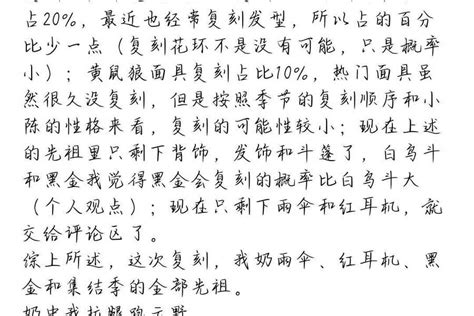 占20%，最近也经常复刻发型，所以占的百分
比少一点（复刻花环不是没有可能，只是概率
小）；黄鼠狼面具复刻占比10%，热门面具虽
然很久没复刻，但是按照季节的复刻顺序和小
陈的性格来看，复刻的可能性较小；现在上述
的先祖里只剩下背饰，发饰和斗篷了，白鸟斗
和黑金我觉得黑金会复刻的概率比白鸟斗大
（个人观点）；现在只剩下雨伞和红耳机，就
交给评论区了。
综上所述，这次复刻，我奶雨伞、红耳机、黑
金和集结季的全部先祖。